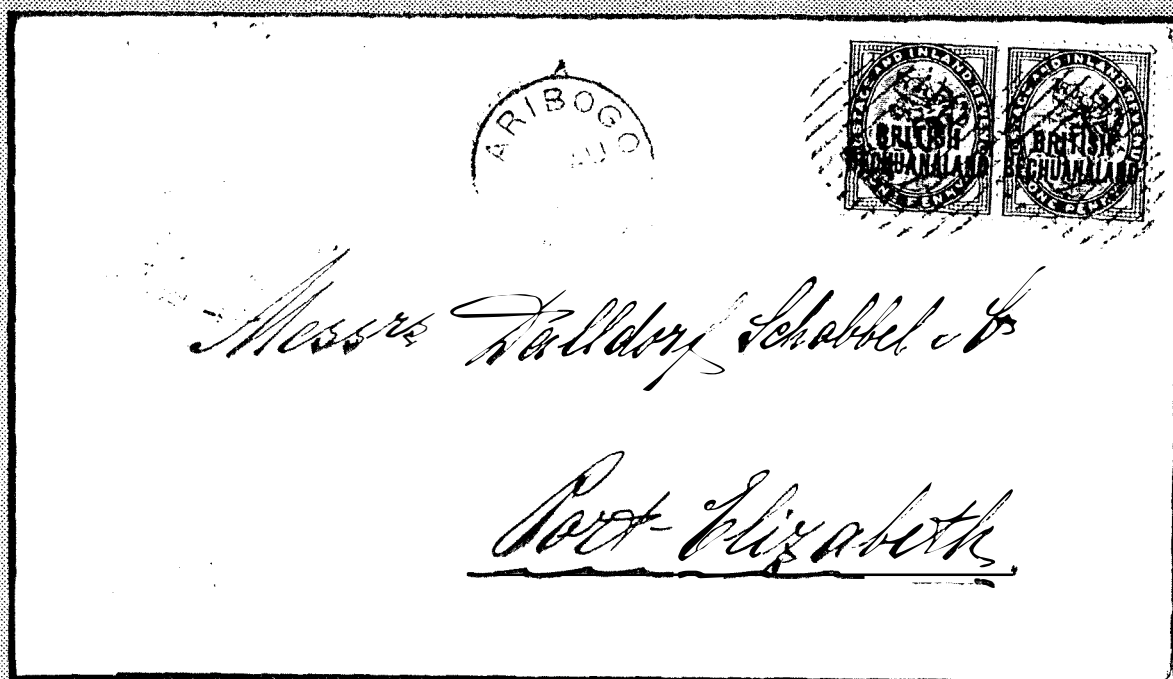 A
ARIBOGO
AU
POSTAGE AND INLAND REVENUE
BRITISH
BECHUANALAND
ONE PENNY
POSTAGE AND INLAND REVENUE
BRITISH
BECHUANALAND
ONE PENNY
Messrs Dalldorf Schabbel & Co
Port-Elizabeth